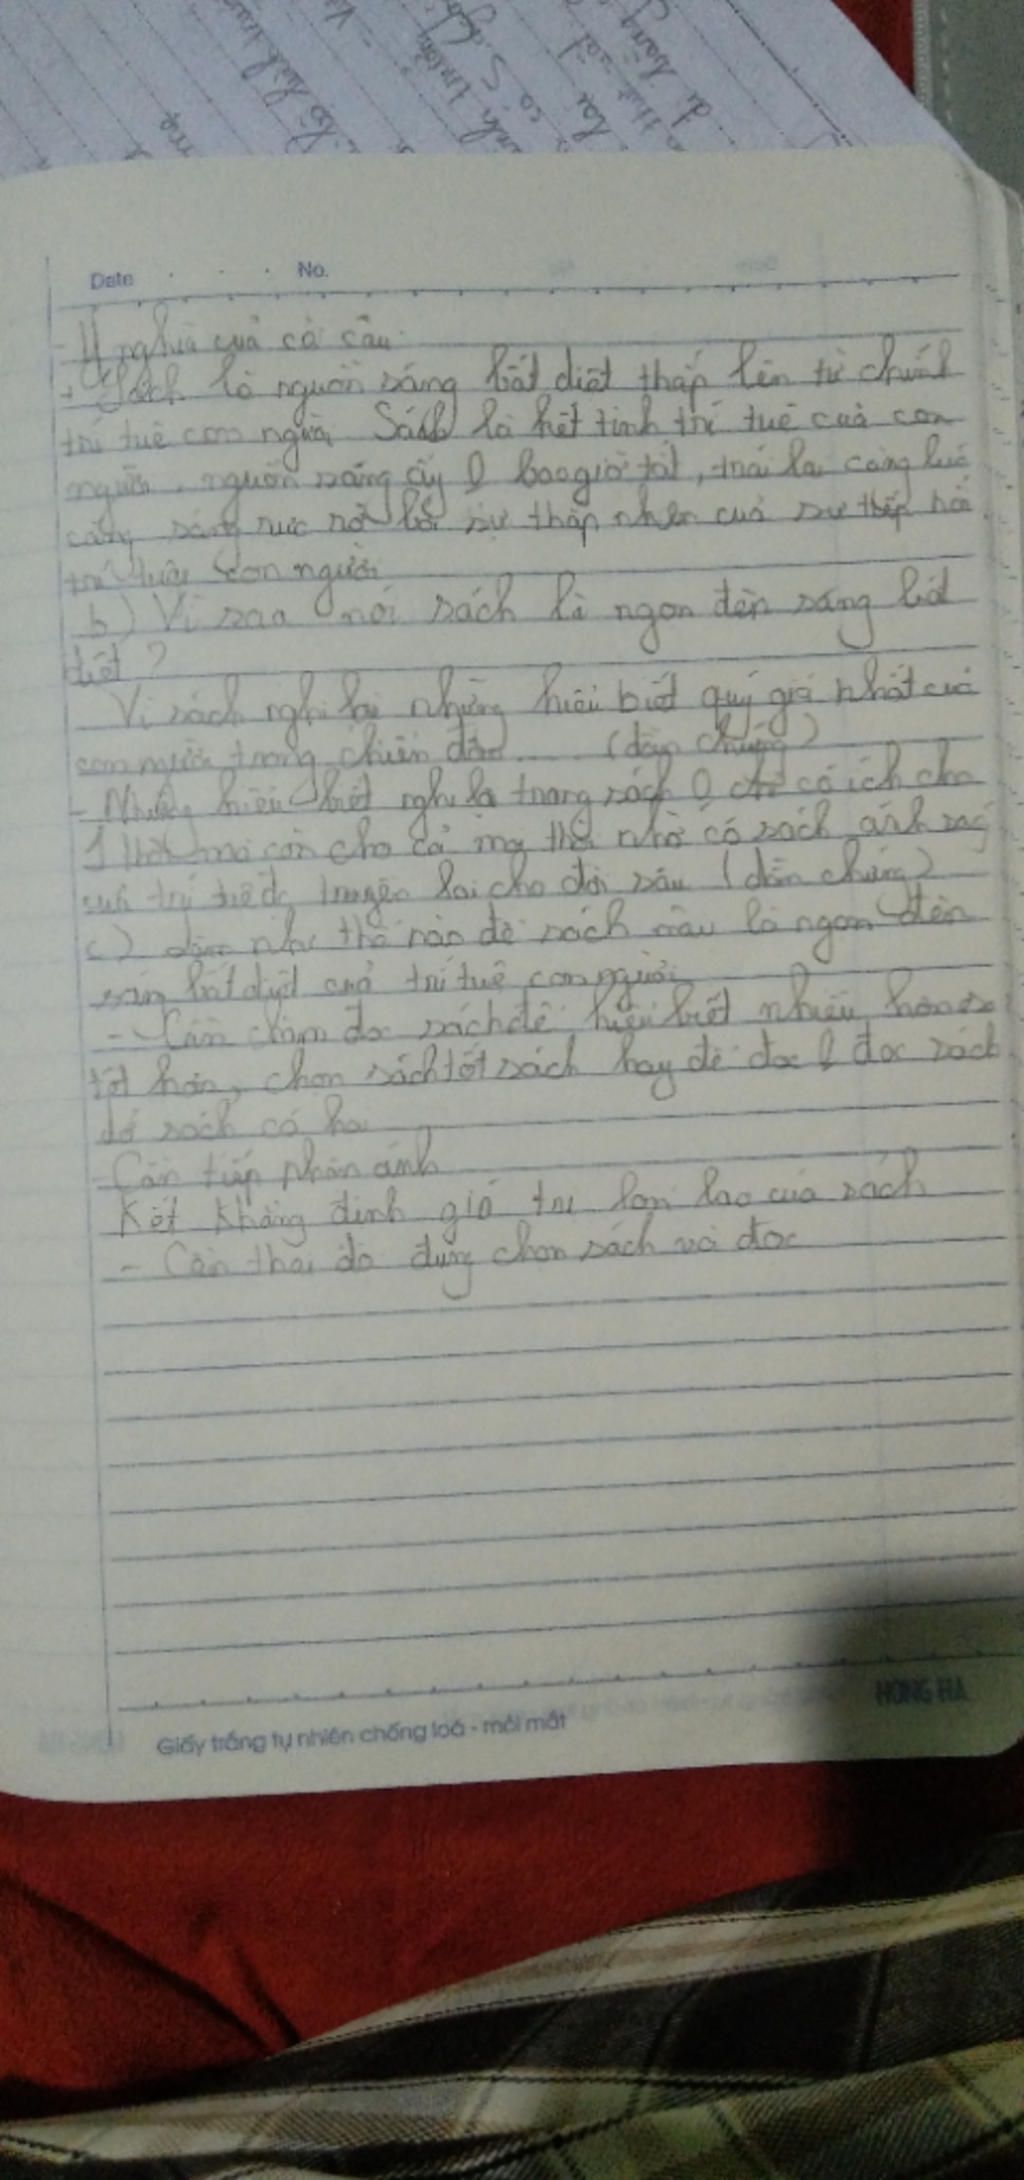 Date No.
- Ý nghĩa của cả câu:
+ Sách là nguồn sáng bất diệt thắp lên từ chính
trí tuệ con người. Sách là kết tinh trí tuệ của con
người. nguồn sáng ấy 0 bao giờ tắt, trái lại càng lúc
càng sáng rực rỡ bởi sự thắp của sự tiếp nối
trí tuệ con người
b) Vì sao nói sách là ngọn đèn sáng bất
diệt?
Vì sách nghi lại những hiểu biết quý giá nhất của
con người trong chiến đấu .... (dẫn chứng)
- Những hiểu biết nghi lại trang sách 0 chỉ có ích cho
1 thời mà còn cho cả mọi thời nhờ có sách ánh sáng
của trí tuệ đc truyền lại cho đời sau (dẫn chứng)
c) Làm như thế nào để sách mãi là ngọn đèn
sáng bất diệt của trí tuệ con người
- Cần chăm đọc sách để hiểu biết nhiều hơn
tốt hơn, chọn sách tốt sách hay để đọc 0 đọc sách
dở sách có hại
- Cần tiếp nhận ánh
Kết Khẳng định giá trị lớn lao của sách
- Cần thái độ đúng chọn sách và đọc
Giấy trắng tự nhiên chống loá - mỏi mắt
HONG HA